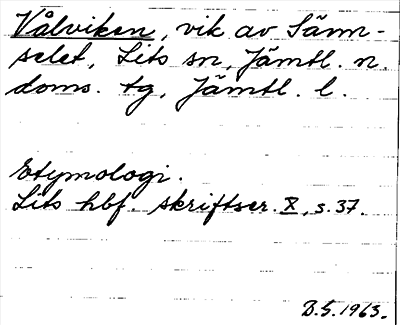 Vålviken, vik av Sänn-
selet, Lits sn, Jämtl. n.
doms. tg, Jämtl. l.
Etymologi.
Lits hbf. skriftser. X, s. 37.
B.S. 1963.